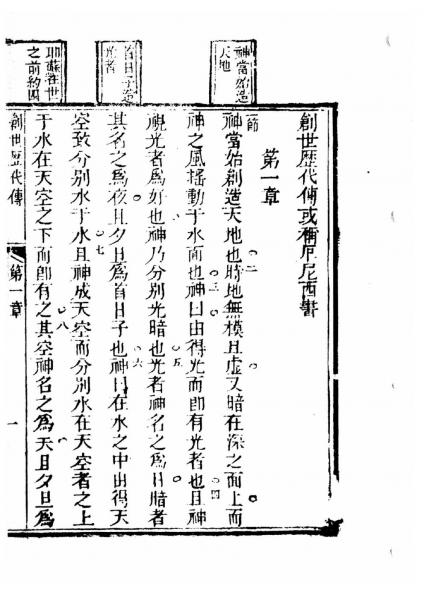 神當始造
天地
首日子造
光者
耶穌在世
之前約四
創世歷代傳或稱厄尼西書
第一章
一節
神當始創造天地也二時地無模且虛又暗在深之面上而
神之風搖動于水面也三神曰由得光而即有光者也四且神
視光者為好也神乃分別光暗也五光者神名之為日暗者
其名之為夜且夕旦為首日子也六神曰在水之中由得天
空致分別水于水七且神成天空而分別水在天空者之上
于水在天空之下而即有之八其空神名之為天且夕旦為
創世歷代傳 第一章 一